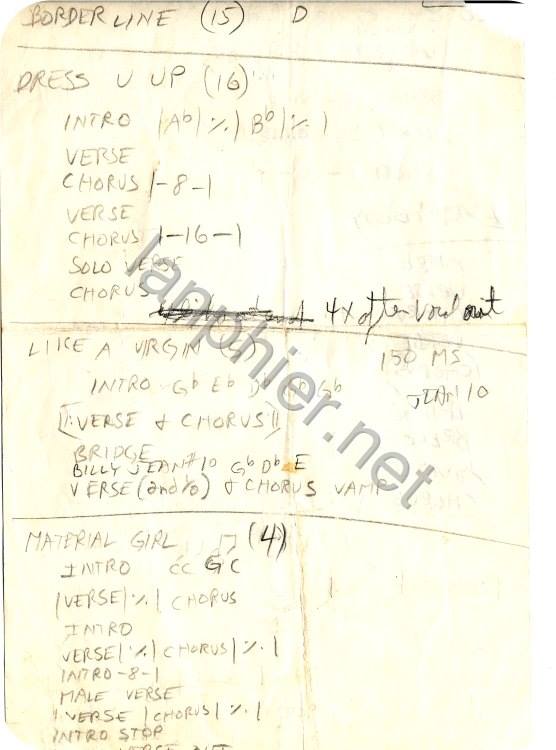 BORDER LINE (15) D
DRESS U UP (16)
INTRO |Ab| ٪ | Bb | ٪ |
VERSE
CHORUS |-8-|
VERSE
CHORUS |-16-|
SOLO VERSE
CHORUS 4X after vocal out
LIKE A VIRGIN 150 MS
INTRO Gb Eb Db Gb JEAN 10
||:VERSE & CHORUS:||
BRIDGE
BILLY JEAN #10 Gb Db E
VERSE (2nd ½) & CHORUS VAMP
MATERIAL GIRL (4)
INTRO CC G C
|VERSE| ٪ | CHORUS
INTRO
VERSE | ٪ | CHORUS | ٪ |
INTRO -8-|
MALE VERSE
VERSE | CHORUS | ٪ |
INTRO STOP
VERSE
lanphier.net